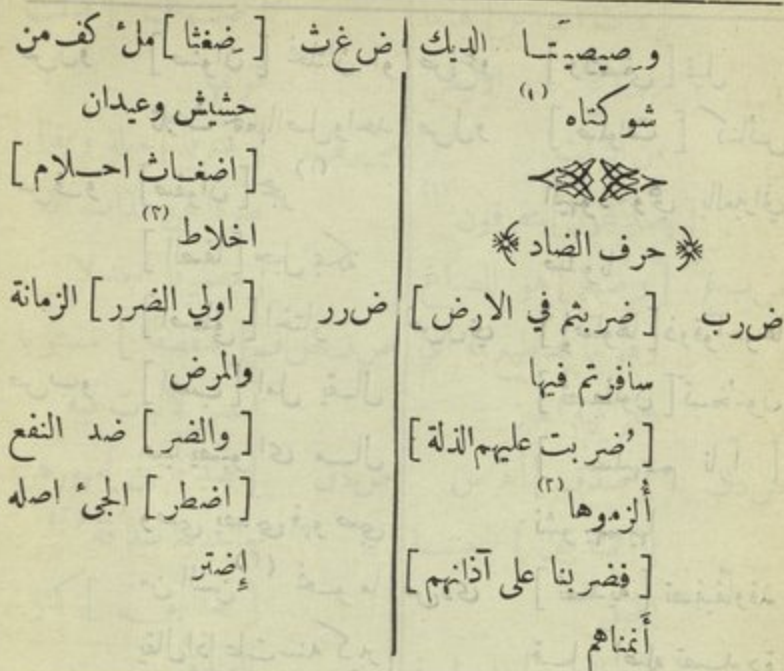 وصيصيتا الديك
شوكتاه (١)
حرف الضاد
ض رب [ضربتم في الارض]
سافرتم فيها
[ضُربت عليهم الذلة]
أُلزموها (٢)
[فضربنا على آذانهم]
أنمناهم
ض غ ث [ضغثا] ملء كف من
حشيش وعيدان
[اضغاث احلام]
اخلاط (٣)
ض رر [اولي الضرر] الزمانة
والمرض
[والضر] ضد النفع
[اضطر] الجىء اصله
إضتر